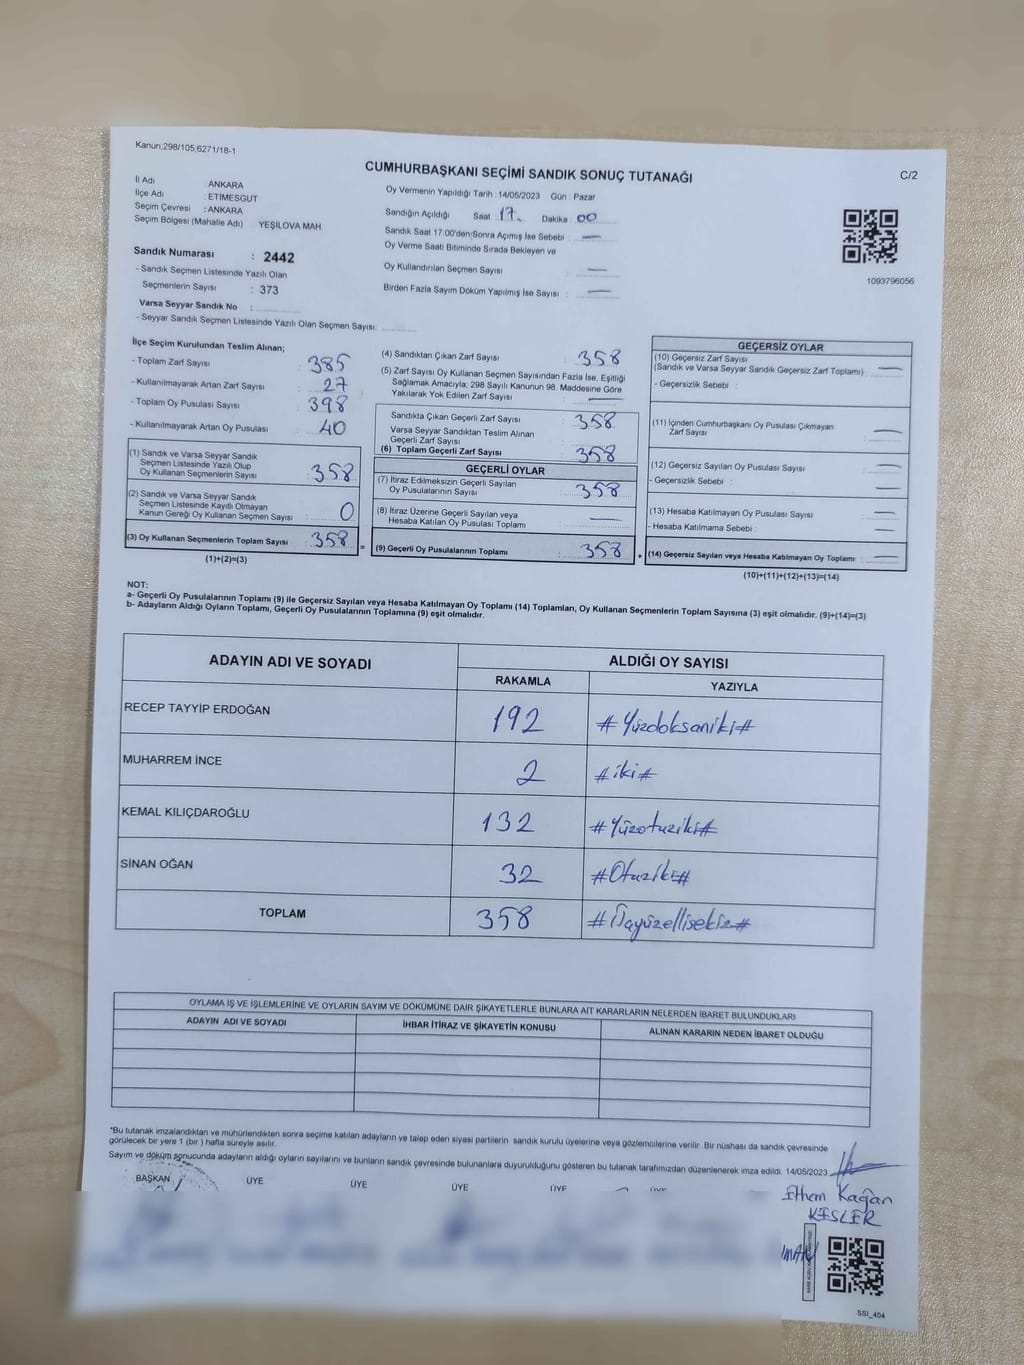 Kanun;298/105;6271/18-1
CUMHURBAŞKANI SEÇİMİ SANDIK SONUÇ TUTANAĞI
C/2
İl Adı : ANKARA
İlçe Adı : ETİMESGUT
Seçim Çevresi : ANKARA
Seçim Bölgesi (Mahalle Adı) YEŞİLOVA MAH
Oy Vermenin Yapıldığı Tarih : 14/05/2023 Gün : Pazar
Sandığın Açıldığı Saat 17. Dakika 00
Sandık Saat 17:00'den Sonra Açılmış İse Sebebi : —
Oy Verme Saati Bitiminde Sırada Bekleyen ve
Oy Kullandırılan Seçmen Sayısı —
Birden Fazla Sayım Döküm Yapılmış İse Sayısı : —
1093796056
Sandık Numarası : 2442
- Sandık Seçmen Listesinde Yazılı Olan
Seçmenlerin Sayısı : 373
Varsa Seyyar Sandık No :
- Seyyar Sandık Seçmen Listesinde Yazılı Olan Seçmen Sayısı:
İlçe Seçim Kurulundan Teslim Alınan;
- Toplam Zarf Sayısı : 385
- Kullanılmayarak Artan Zarf Sayısı : 27
- Toplam Oy Pusulası Sayısı : 398
- Kullanılmayarak Artan Oy Pusulası : 40
(1) Sandık ve Varsa Seyyar Sandık
Seçmen Listesinde Yazılı Olup
Oy Kullanan Seçmenlerin Sayısı : 358
(2) Sandık ve Varsa Seyyar Sandık
Seçmen Listesinde Kayıtlı Olmayan
Kanun Gereği Oy Kullanan Seçmen Sayısı : 0
(3) Oy Kullanan Seçmenlerin Toplam Sayısı : 358
(1)+(2)=(3)
(4) Sandıktan Çıkan Zarf Sayısı : 358
(5) Zarf Sayısı Oy Kullanan Seçmen Sayısından Fazla İse, Eşitliği
Sağlamak Amacıyla; 298 Sayılı Kanunun 98. Maddesine Göre
Yakılarak Yok Edilen Zarf Sayısı : —
Sandıkta Çıkan Geçerli Zarf Sayısı : 358
Varsa Seyyar Sandıktan Teslim Alınan
Geçerli Zarf Sayısı :
(6) Toplam Geçerli Zarf Sayısı : 358
GEÇERLİ OYLAR
(7) İtiraz Edilmeksizin Geçerli Sayılan
Oy Pusulalarının Sayısı : 358
(8) İtiraz Üzerine Geçerli Sayılan veya
Hesaba Katılan Oy Pusulası Toplamı : —
= (9) Geçerli Oy Pusulalarının Toplamı : 358 +
GEÇERSİZ OYLAR
(10) Geçersiz Zarf Sayısı
(Sandık ve Varsa Seyyar Sandık Geçersiz Zarf Toplamı) : —
- Geçersizlik Sebebi :
(11) İçinden Cumhurbaşkanı Oy Pusulası Çıkmayan
Zarf Sayısı : —
(12) Geçersiz Sayılan Oy Pusulası Sayısı : —
- Geçersizlik Sebebi : —
(13) Hesaba Katılmayan Oy Pusulası Sayısı : —
- Hesaba Katılmama Sebebi : —
(14) Geçersiz Sayılan veya Hesaba Katılmayan Oy Toplamı : —
(10)+(11)+(12)+(13)=(14)
NOT:
a- Geçerli Oy Pusulalarının Toplamı (9) ile Geçersiz Sayılan veya Hesaba Katılmayan Oy Toplamı (14) Toplamları, Oy Kullanan Seçmenlerin Toplam Sayısına (3) eşit olmalıdır. (9)+(14)=(3)
b- Adayların Aldığı Oyların Toplamı, Geçerli Oy Pusulalarının Toplamına (9) eşit olmalıdır.
ADAYIN ADI VE SOYADI ALDIĞI OY SAYISI
RAKAMLA YAZIYLA
RECEP TAYYİP ERDOĞAN 192 # Yüzdoksaniki #
MUHARREM İNCE 2 # iki #
KEMAL KILIÇDAROĞLU 132 # Yüzotuziki #
SİNAN OĞAN 32 # Otuziki #
TOPLAM 358 # Üçyüzellisekiz #
OYLAMA İŞ VE İŞLEMLERİNE VE OYLARIN SAYIM VE DÖKÜMÜNE DAİR ŞİKAYETLERLE BUNLARA AİT KARARLARIN NELERDEN İBARET BULUNDUKLARI
ADAYIN ADI VE SOYADI İHBAR İTİRAZ VE ŞİKAYETİN KONUSU ALINAN KARARIN NEDEN İBARET OLDUĞU
*Bu tutanak imzalandıktan ve mühürlendikten sonra seçime katılan adayların ve talep eden siyasi partilerin sandık kurulu üyelerine veya gözlemcilerine verilir. Bir nüshası da sandık çevresinde
görülecek bir yere 1 (bir ) hafta süreyle asılır.
Sayım ve döküm sonucunda adayların aldığı oyların sayılarını ve bunların sandık çevresinde bulunanlara duyurulduğunu gösteren bu tutanak tarafımızdan düzenlenerek imza edildi. 14/05/2023
BAŞKAN ÜYE ÜYE ÜYE ÜYE ÜYE
Ethem Kağan
KESLER
SSI_404